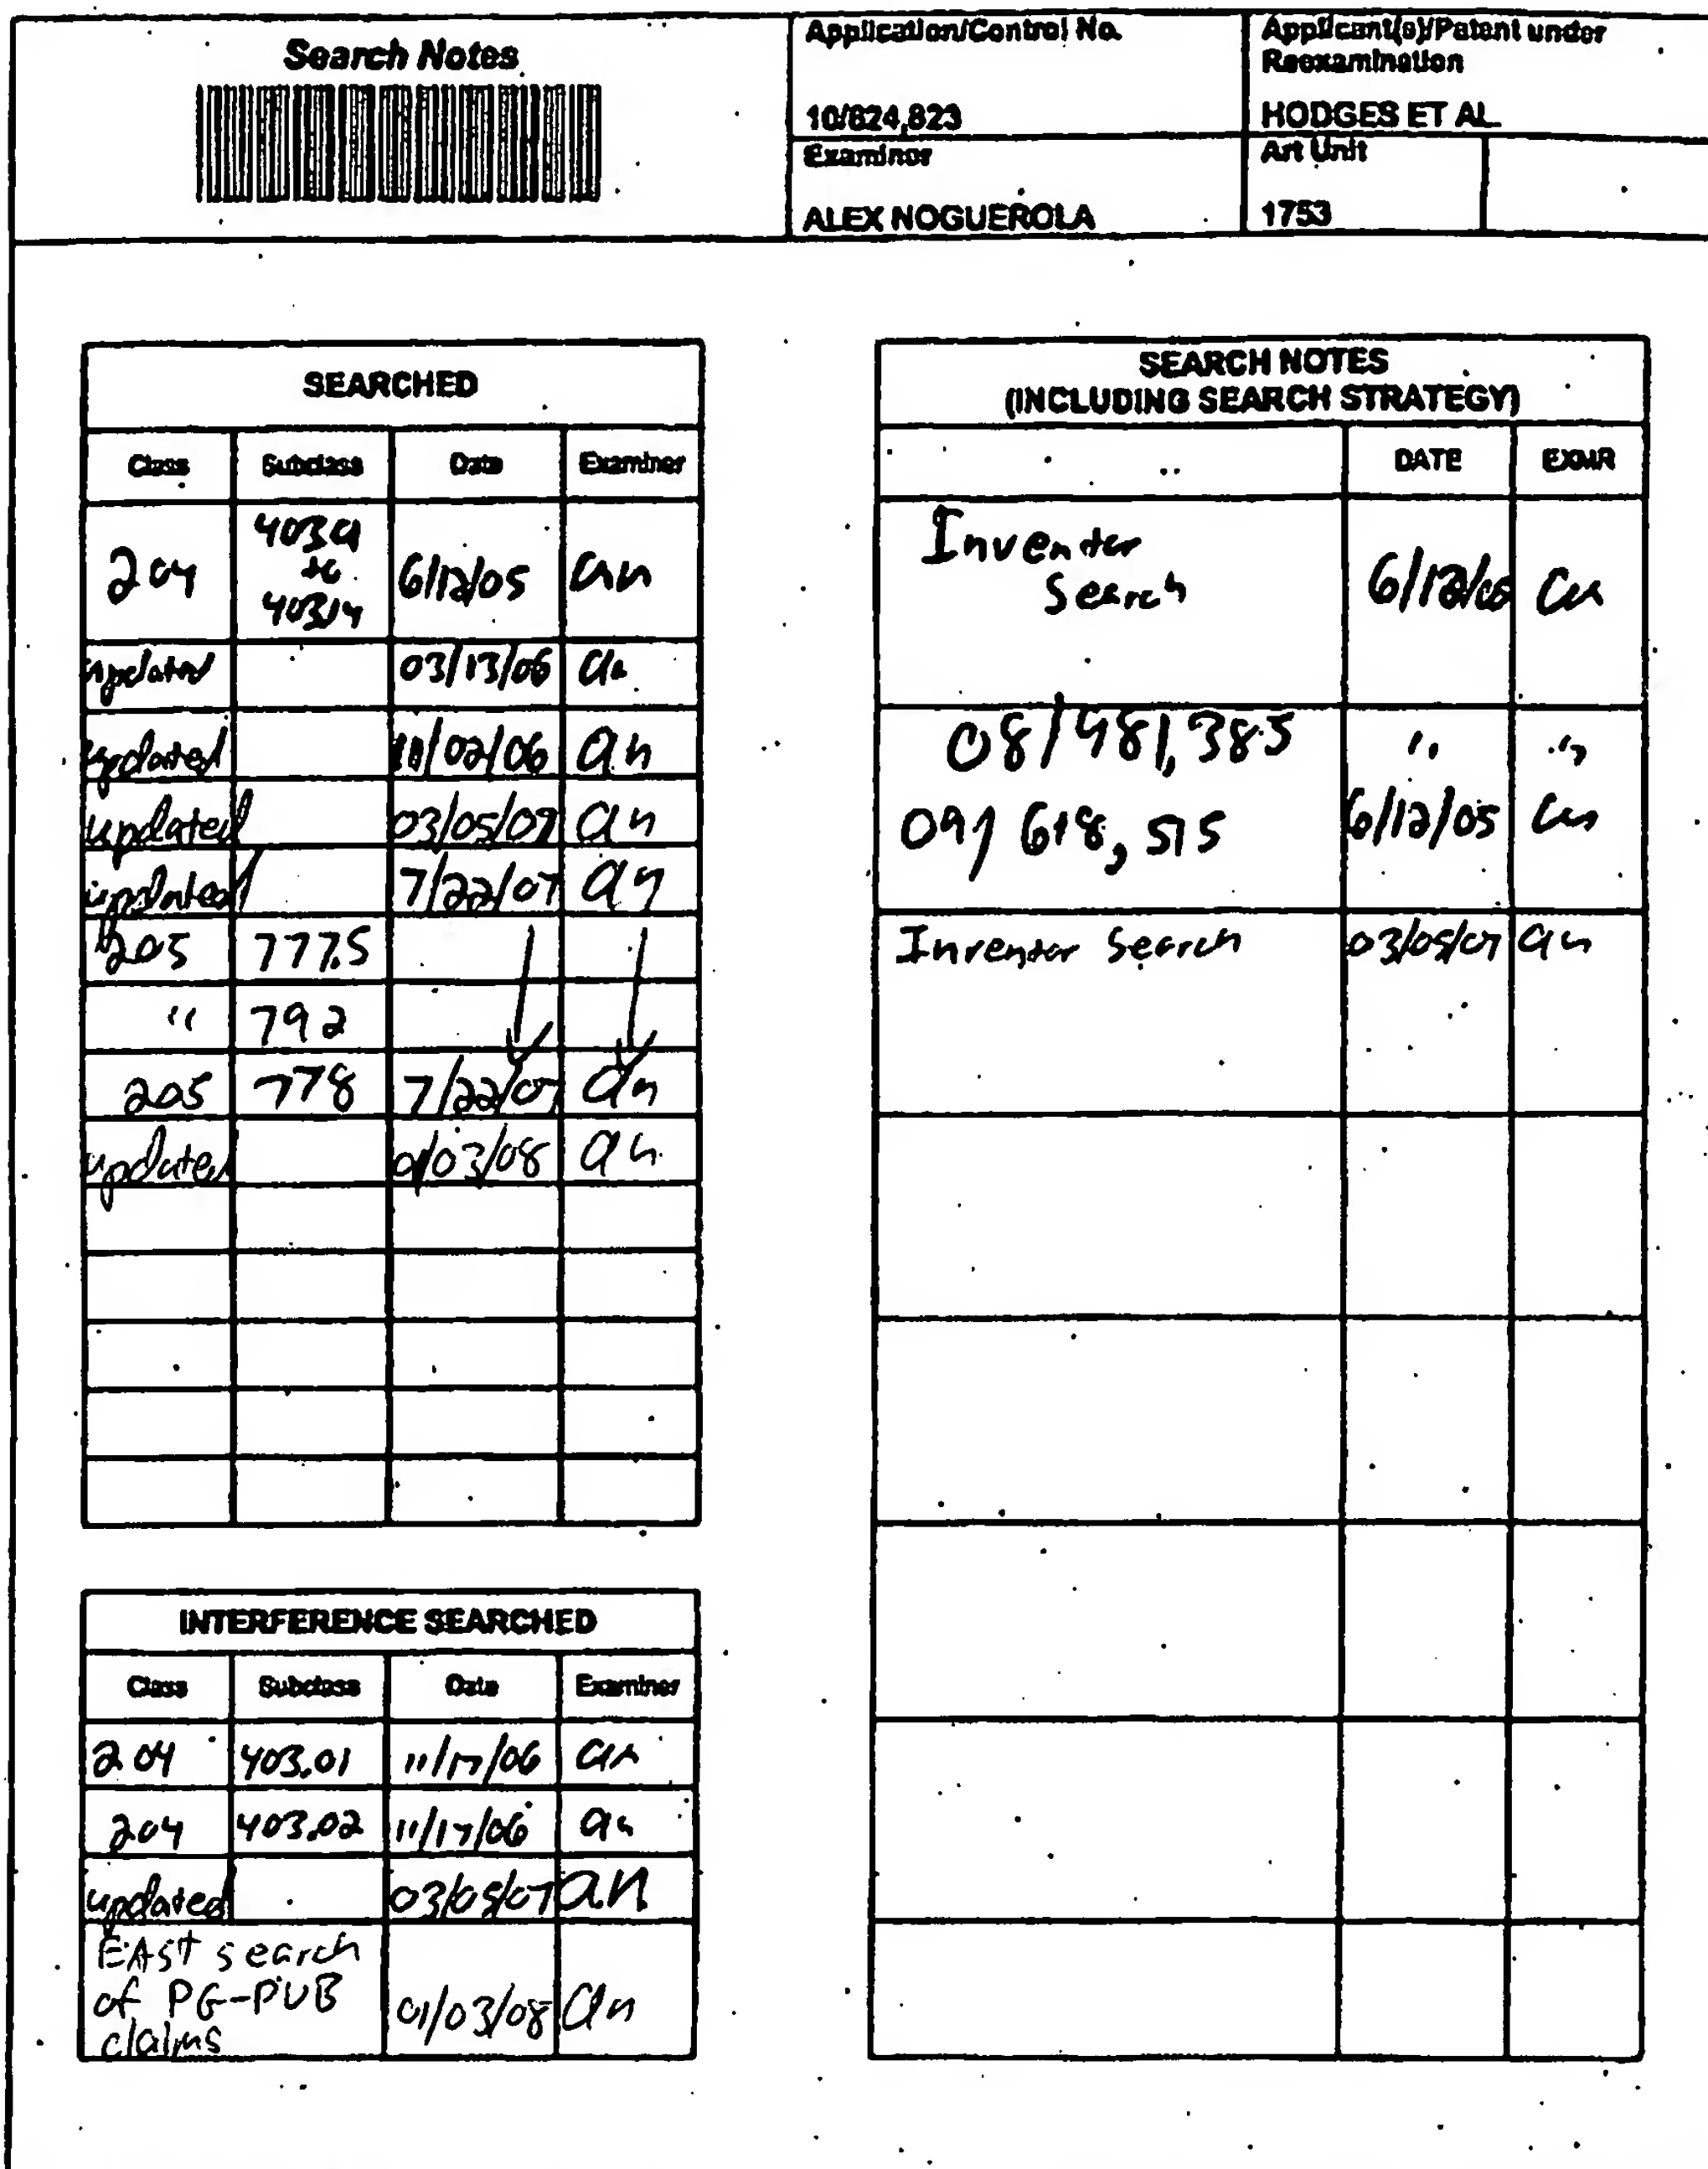 Search Notes
Application/Control No.
10/824,823
Applicant(s)/Patent under
Reexamination
HODGES ET AL.
Examiner
ALEX NOGUEROLA
Art Unit
1753
SEARCHED
Class Subclass Date Examiner
204 to 6/12/05 an
updated 03/13/06 an
updated 11/02/06 an
updated 03/05/07 an
updated 7/22/07 an
205 777.5
" 792
205 778 7/22/07 an
updated 01/03/08 an
INTERFERENCE SEARCHED
Class Subclass Date Examiner
204 403.01 11/17/06 an
204 403.02 11/17/06 an
updated 03/05/07 an
EAST search
of PG-PUB
claims 01/03/08 an
SEARCH NOTES
(INCLUDING SEARCH STRATEGY)
DATE EXMR
Inventor
Search 6/12/05 an
08/981,385 " "
09/ 6/12/05 an
Inventor Search 03/05/07 an